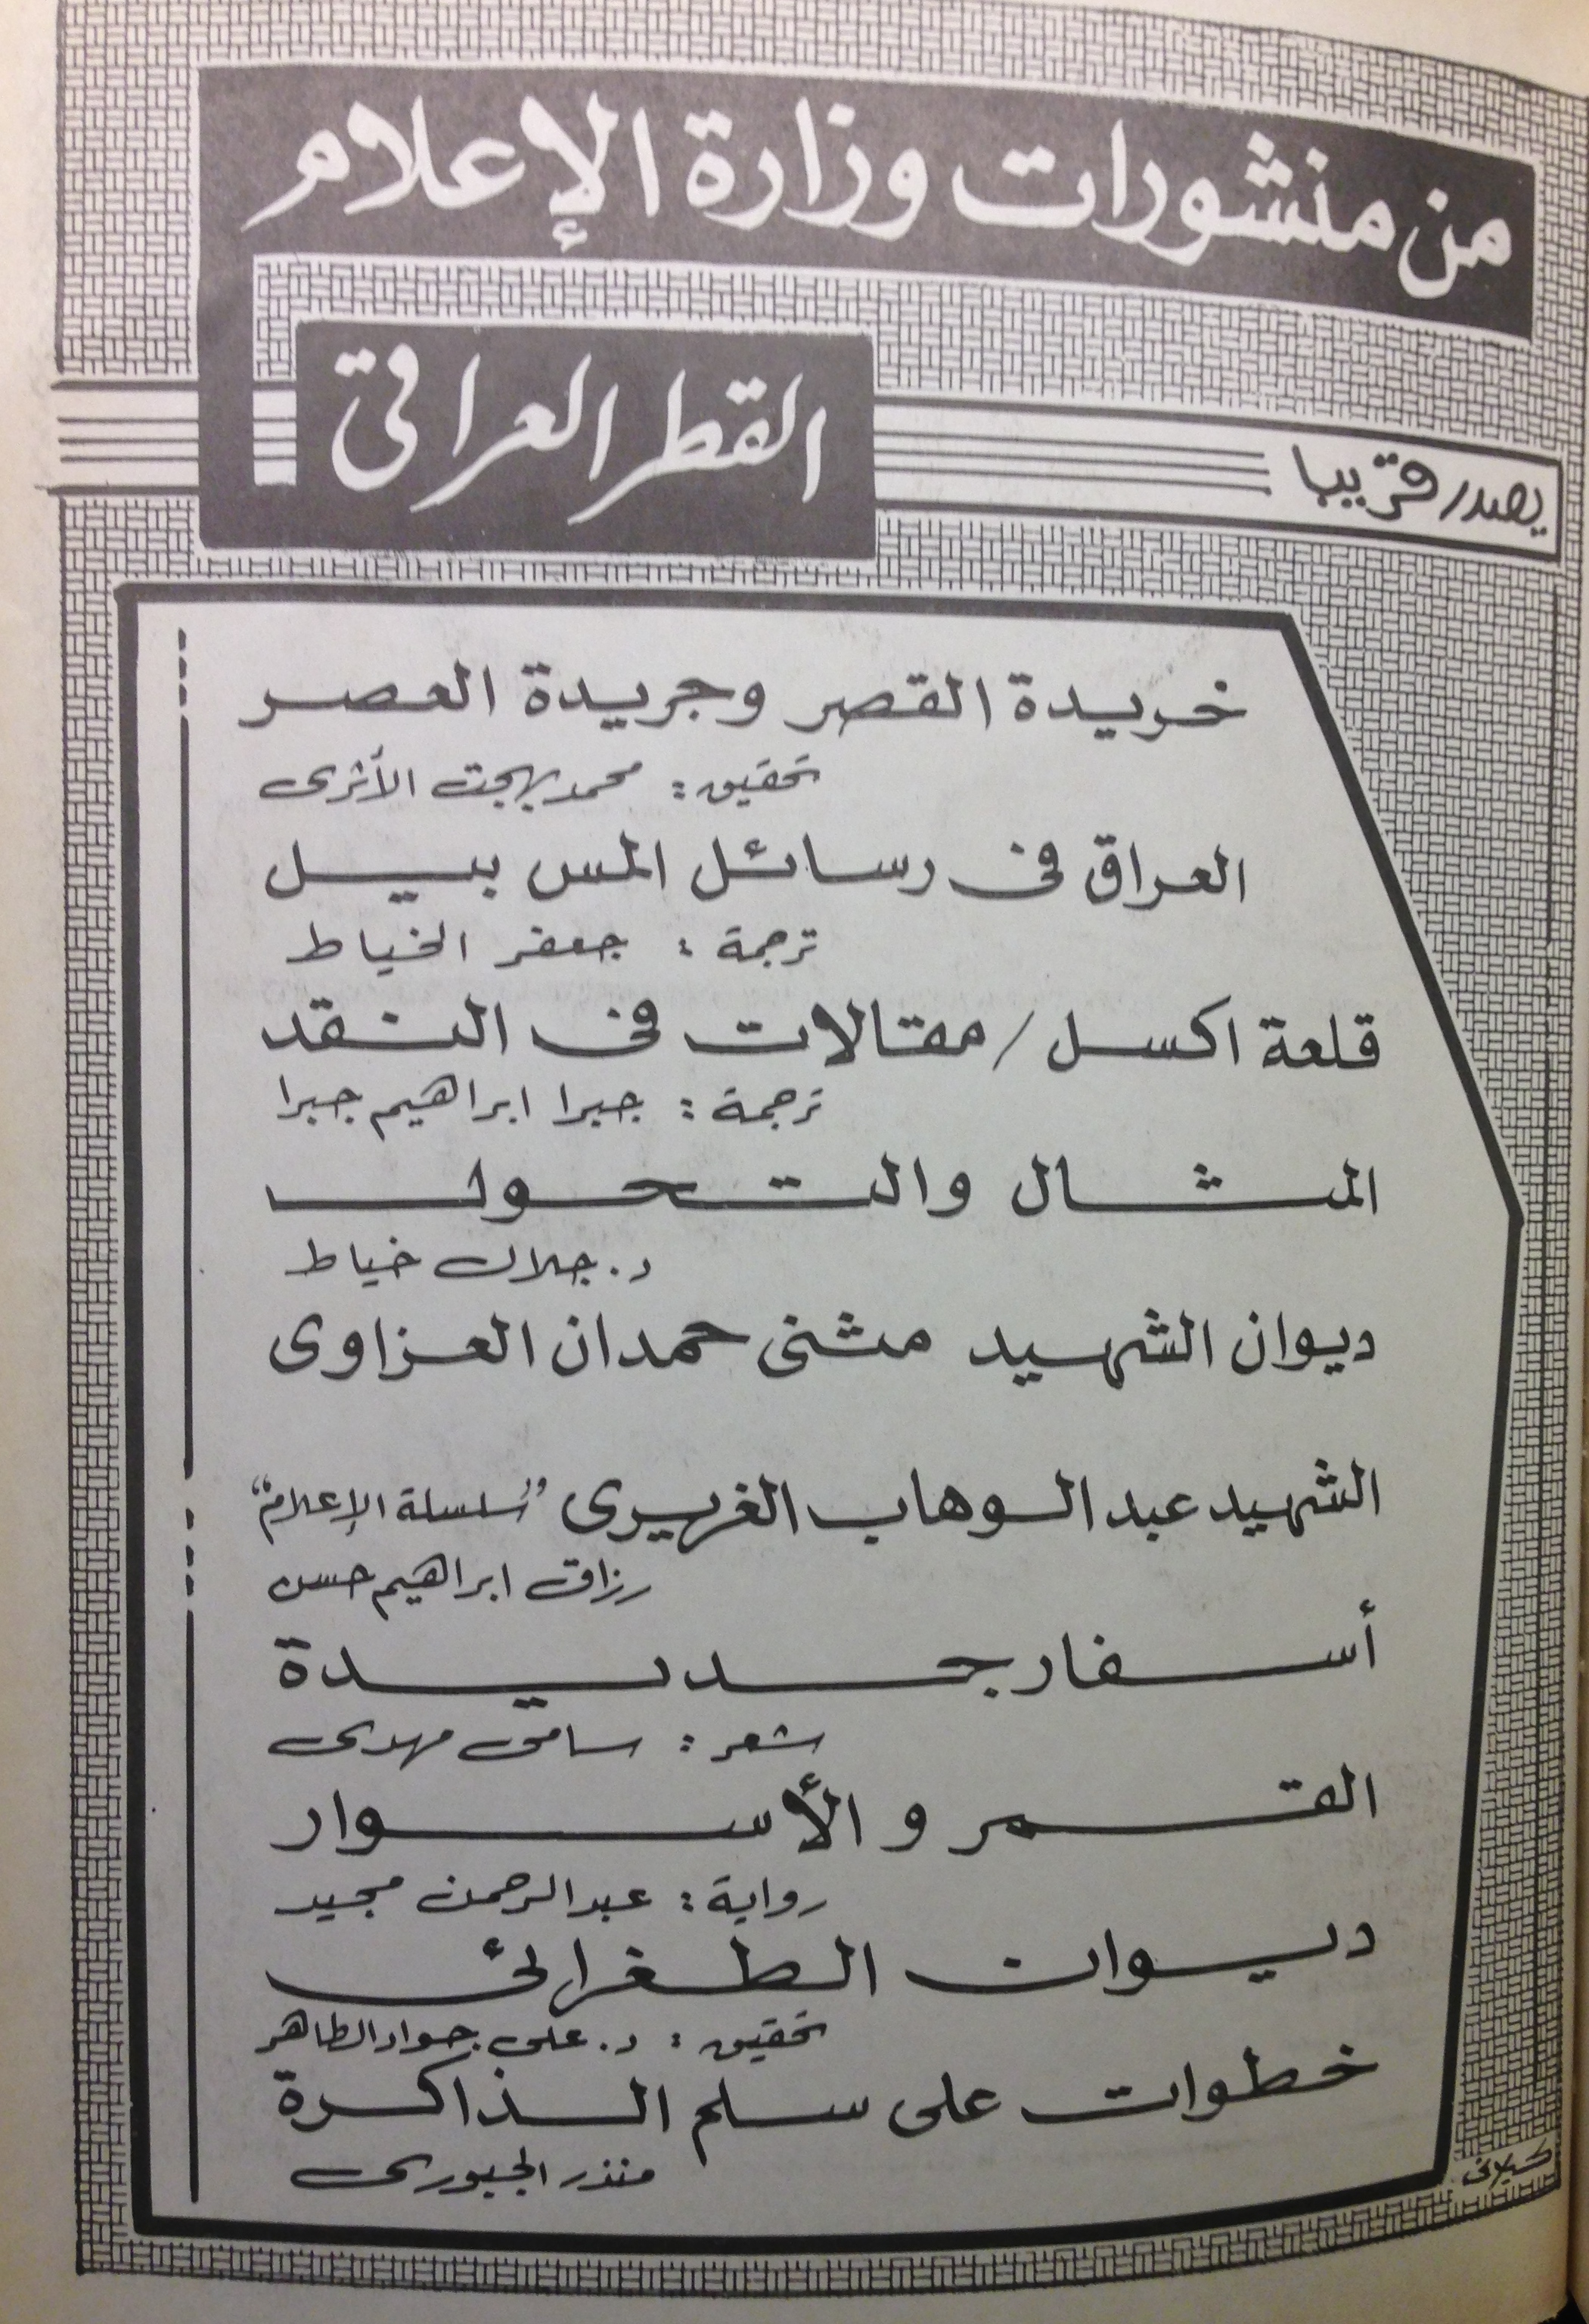 من منشورات وزارة الإعلام
القطر العراقي
يصدر قريبا
خريدة القصر وجريدة العصر
تحقيق : محمد بهجت الأثرى
العراق فى رسائل المس بيل
ترجمة : جعفر الخياط
قلعة اكسل / مقالات فى النقد
ترجمة : جبرا ابراهيم جبرا
المثال والتحول
د. جلال خياط
ديوان الشهيد مثنى حمدان العزاوى
الشهيد عبد الوهاب الغريرى "سلسلة الإعلام"
رزاق ابراهيم حسن
أسفار جديدة
شعر : سامى مهدى
القمر و الأسوار
رواية : عبد الرحمن مجيد
ديوان الطغرائى
تحقيق : د. على جواد الطاهر
خطوات على سلم الذاكرة
منذر الجبورى